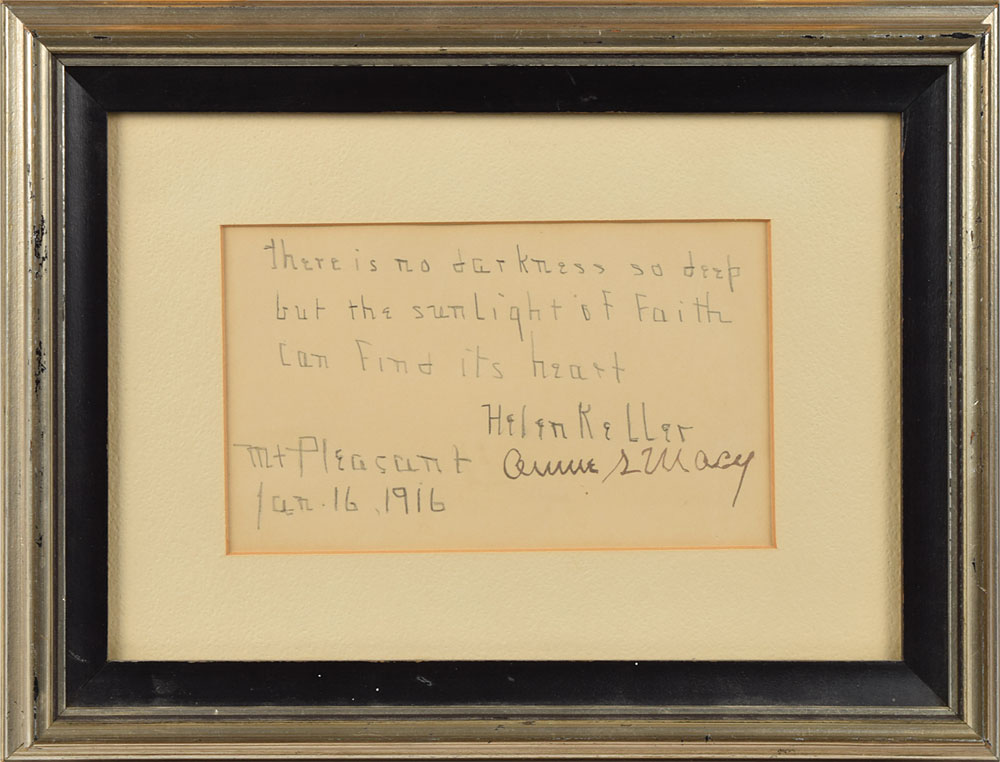 there is no darkness so deep
but the sunlight of Faith
can Find its heart
Helen Keller
Mt Pleasant Annie S Macy
Jan. 16, 1916